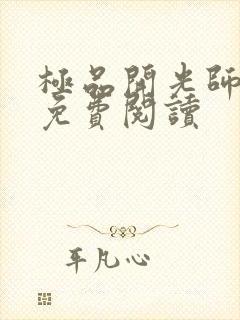 極品開光師
免費閱讀
平凡心